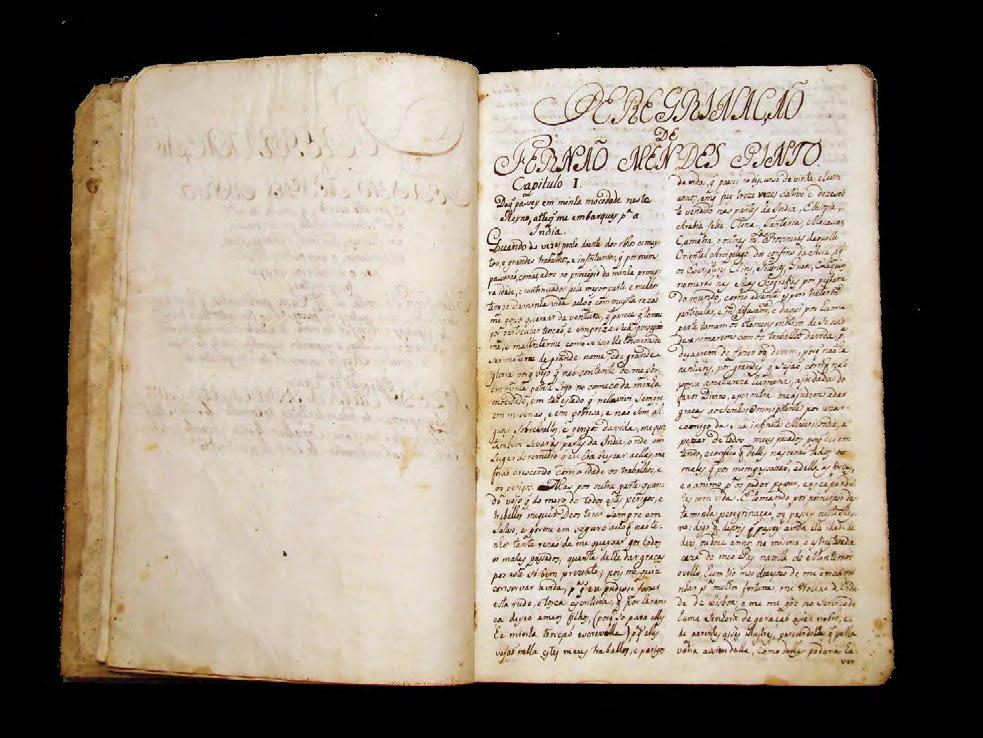 PEREGRINAÇÃO
DE
FERNAÕ MENDES PINTO.
Capitulo I.
Do q̃ passey em minha mocidade neste
Reyno, athe q̃ me embarquey p.ª a
India.
Quando às vezes ponho diante dos olhos os muy-
tos, e grandes trabalhos, e infortunios, q̃ por mim
passaraõ, começados no principio da minha primey-
ra idade, e continuados pela mayor parte, e melhor
tempo da minha vida, acho q̃ com muyta razaõ
me posso queixar da ventura, q̃ parece q̃ tomou
por particular tençaõ, e empreza sua perseguir
me, e maltratarme, como se isso lhe houvera de
ser materia de grande nome, e de grande
gloria; porq̃ vejo q̃ naõ contente de me pôr
em minha patria logo no começo da minha
mocidade, em tal estado q̃ nella vivi sempre
em miserias, e em pobreza, e naõ sem al
guns sobresaltos, e perigos da vida, me quiz
tambem levar às partes da India, onde em
lugar do remedio q̃ eu hia buscar a ellas, me
foraõ crescendo com a idade os trabalhos, e
os perigos. Mas por outra parte quan
do vejo q̃ do meyo de todos estes perigos, e
trabalhos me quiz Deos tirar sempre em
salvo, e pôrme em seguro, acho q̃ naõ te-
nho tanta rezaõ de me queixar por todos
os males passados, quanta de lhe dar graças
por este só bem prezente; pois me quiz
conservar a vida, p.ª q̃ eu pudesse fazer
esta rude, e tosca escritura, q̃ por heran
ça deyxo a meus filhos, (porq̃ só para elles
he minha tençaõ escrevella) p.ª q̃ elles
vejaõ nella estes meus trabalhos, e perigos
da vida, q̃ passey no discurso de vinte e hum
annos, em q̃ fuy treze vezes cativo, e dezasete
vendido nas partes da India, Ethiopia,
Arabia feliz, China, Tartaria, Macassar,
Çamatra, e outras m.tas Provincias daquelle
Oriental Arcipelago dos confins da Asia, a q̃
os Escritores Chins, Siames, Gueos,
nomeaõ nas suas Geografias por pestana
do mundo, como adiante espero tratar
particular, e m.to difusam.te, e daqui por huma
parte tomem os homens motivo de se naõ
desanimarem com os trabalhos da vida, p.ª
deyxarem de fazer o q̃ devem; porq̃ naõ ha
nenhuns, por grandes q̃ sejaõ, com q̃ naõ
possa a natureza humana, ajudada do
favor Divino, e por outra me ajudem a dar
graças ao Senhor Omnipotente por uzar
comigo da sua infinita Misericordia, a
pezar de todos meus pecados, porq̃ eu en
tendo, e confesso q̃ delles nasceraõ todos os
males, q̃ por mim passaraõ, e della as forças,
e o animo p.ª os poder passar, e escapar del-
les com vida. E tomando por principio des
ta minha peregrinaçaõ, o q̃ passey neste Rey-
no: digo q̃ depois q̃ passey a vida até idade de
dez ou doze annos na miseria, e estreiteza da
caza de meu Pay na vila de Montemor
o velho, hum tio meu dezejozo de me encami-
nhar p.ª melhor fortuna, me trouxe à Cida
de de Lisboa, e me pôz no serviço de
huma Senhora de geraçaõ assás nobre, e
de parentes assás illustres, parecendolhe q̃ pela
valia assim della, como delles poderia ha-
ver